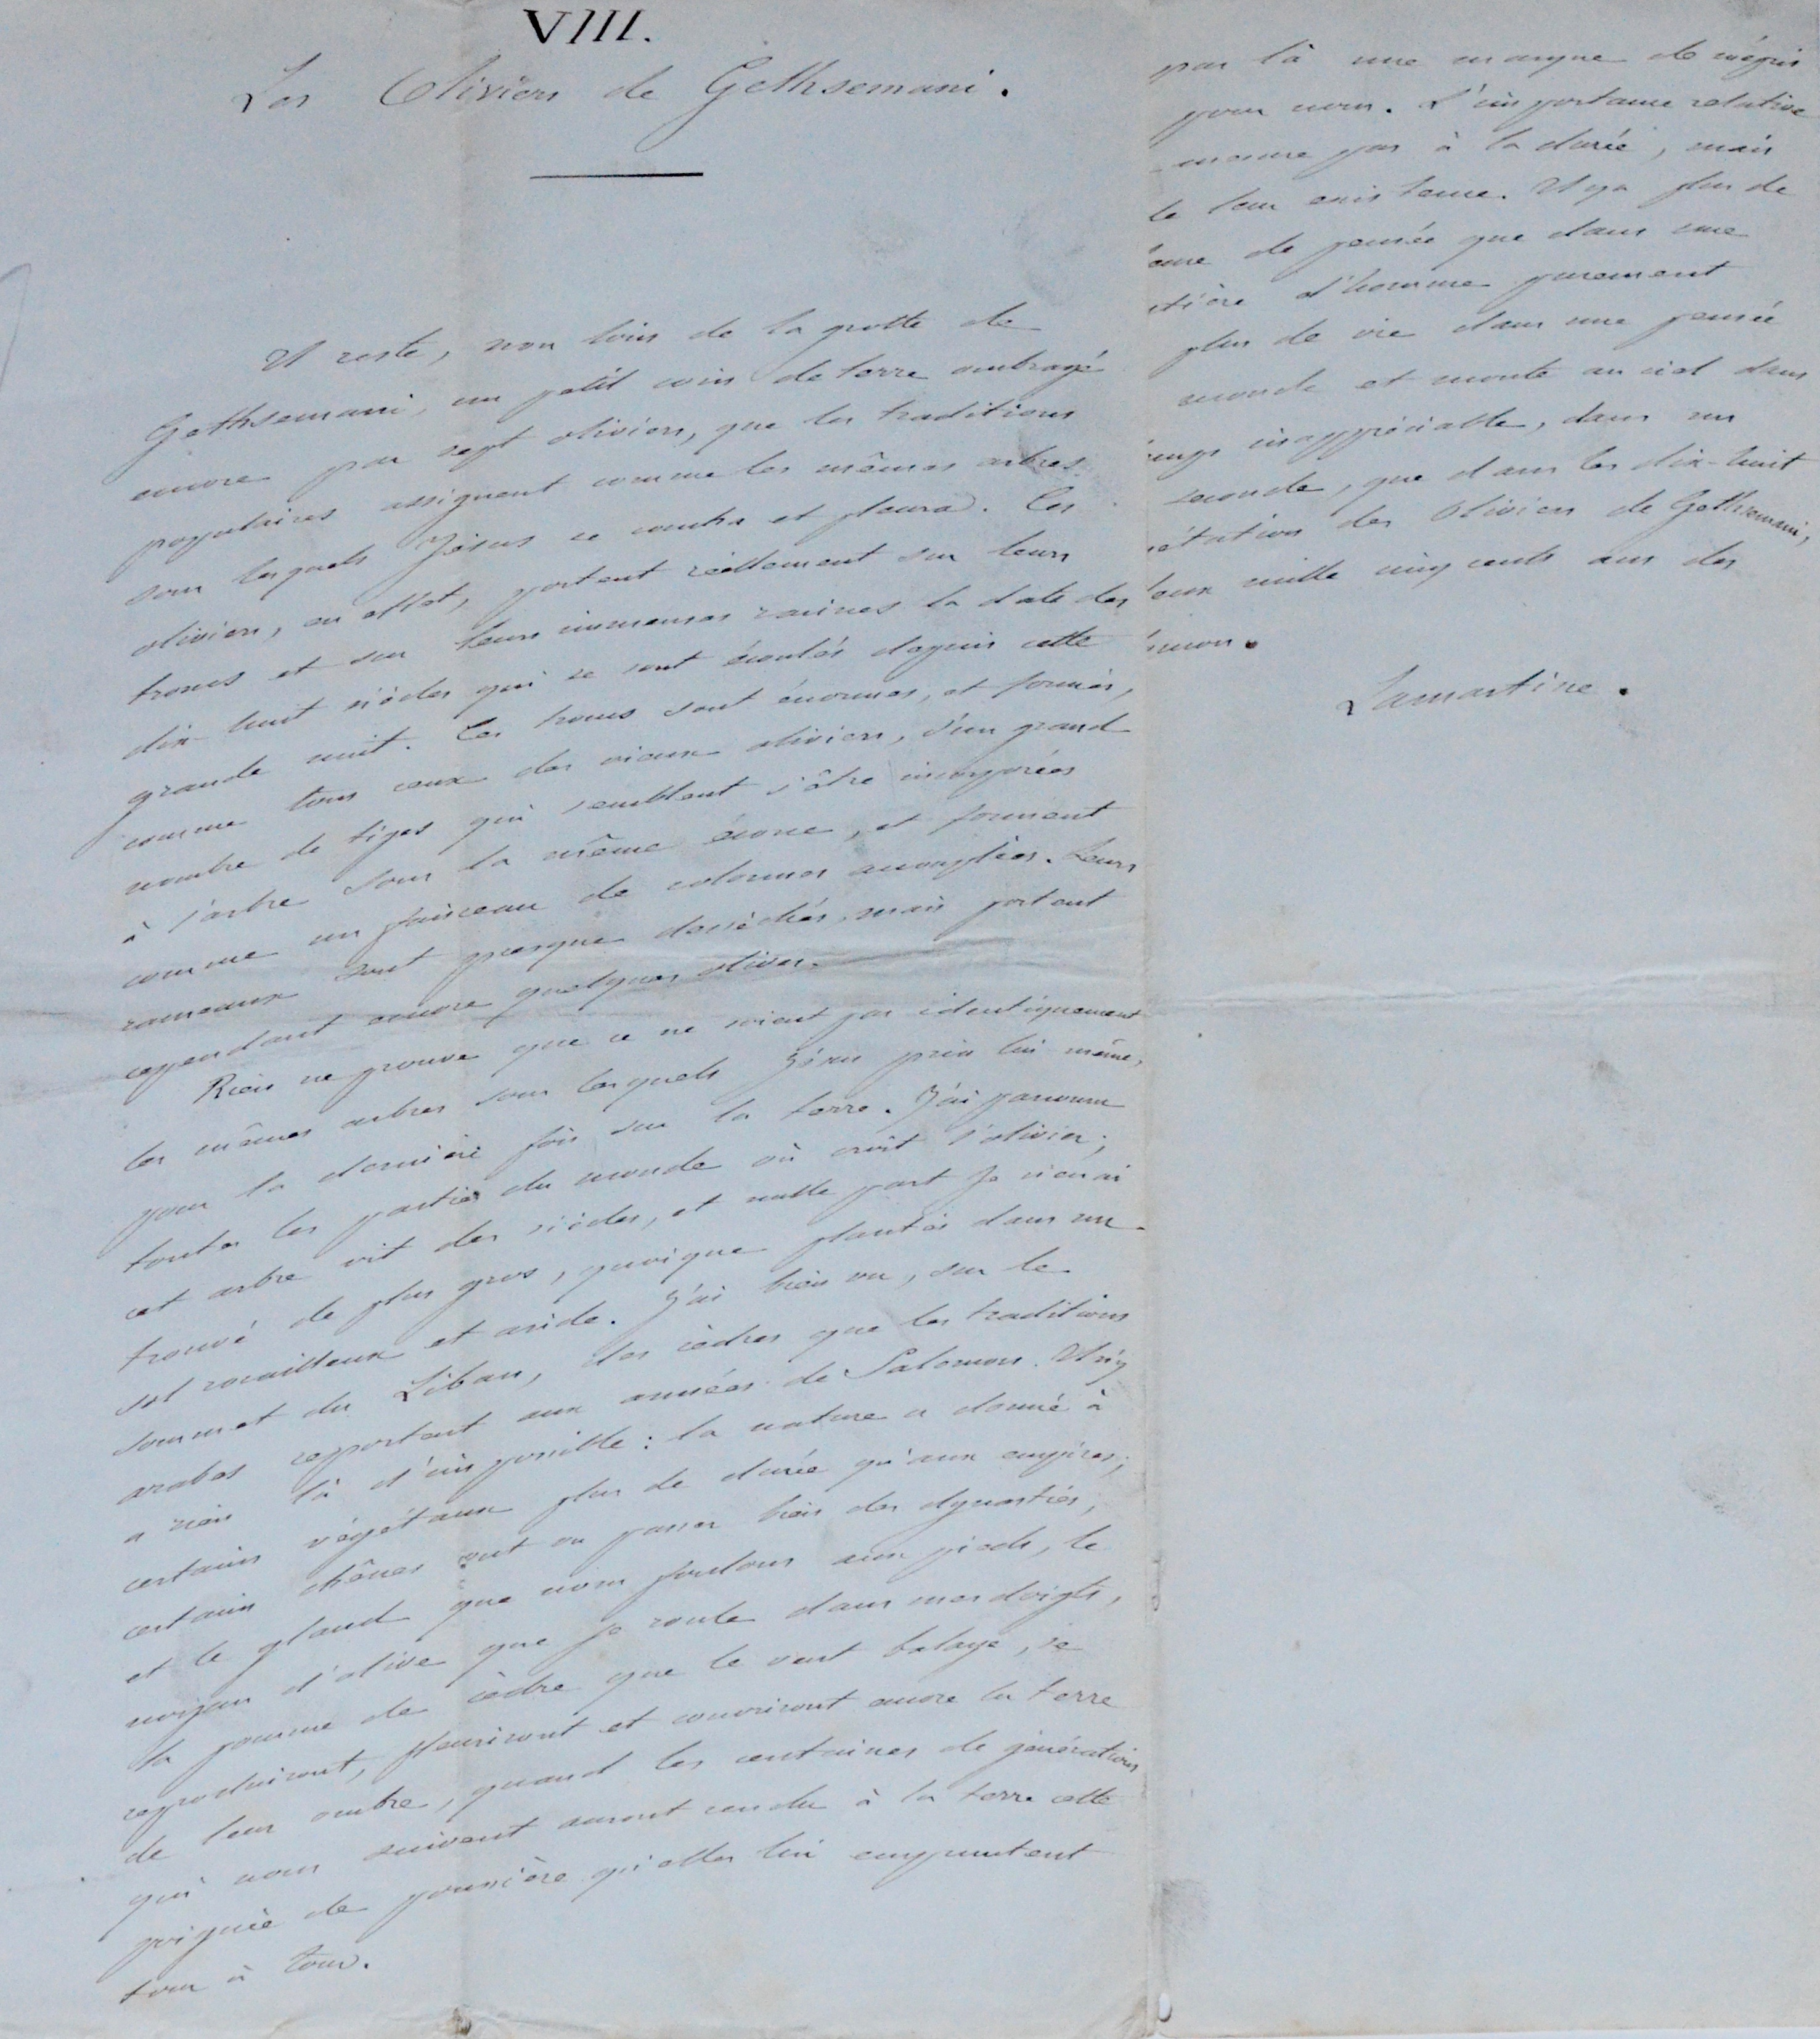 VIII.
Les Oliviers de Gethsemani.
Il reste, non loin de la grotte de
Gethsemani, un petit coin de terre ombragé
encore par sept oliviers, que les traditions
populaires assignent comme les mêmes arbres
sous lesquels Jésus se coucha et pleura. Ces
oliviers, en effet, portent réellement sur leurs
troncs et sur leurs immenses racines la date des
dix-huit siècles qui se sont écoulés depuis cette
grande nuit. Ces troncs sont énormes, et formés,
comme tous ceux des vieux oliviers, d'un grand
nombre de tiges qui semblent s'être incorporées
à l'arbre sous la même écorce, et forment
comme un faisceau de colonnes accouplées. Leurs
rameaux sont presque desséchés, mais portent
cependant encore quelques olives.
Rien ne prouve que ce ne soient pas identiquement
les mêmes arbres sous lesquels Jésus pria lui même,
pour la dernière fois sur la terre. J'ai parcouru
toutes les parties du monde où croît l'olivier;
cet arbre vit des siècles, et nulle part je n'en ai
trouvé de plus gros, quoique plantés dans un
sol rocailleux et aride. J'ai bien vu, sur le
sommet du Liban, des cèdres que les traditions
arabes reportent aux années de Salomon. Il n'y
a rien là d'impossible: la nature a donné à
certains végétaux plus de durée qu'aux empires;
certains chênes ont vu passer bien des dynasties,
et le gland que nous foulons aux pieds, le
noyau d'olive que je roule dans mes doigts,
la pomme de cèdre que le vent balaye, se
reproduiront, fleuriront et couvriront encore la terre
de leur ombre, quand les centaines de générations
qui nous suivent auront rendu à la terre cette
poignée de poussière qu'elles lui empruntent
tour à tour.
par là une marque de mépris
pour nous. L'importance relative
mesure pas à la durée, mais
de leur existence. Il y a plus de
de pensée que dans une
d'homme purement
plus de vie dans une pensée
monde et monte au ciel dans
inappréciable, dans un
seconde, que dans les dix-huit
des Oliviers de Gethsemani,
mille cinq cents ans des
Lamartine.